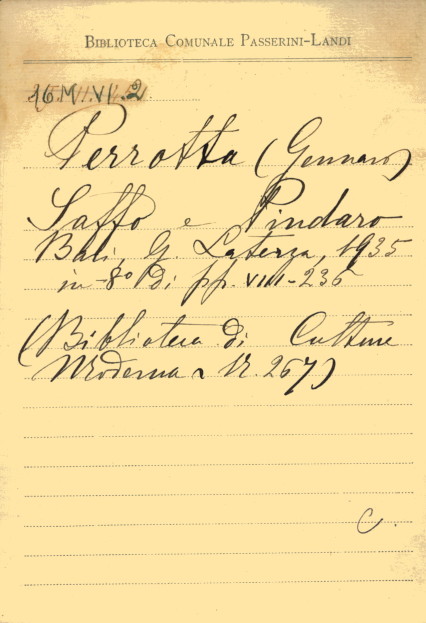 BIBLIOTECA COMUNALE PASSERINI-LANDI
16.M.VI.2
Perrotta (Gennaro)
Saffo e Pindaro
Bari, G. Laterza, 1935
in-8º di pp. VIII-236
(Biblioteca di Cultura
Moderna N. 267)
C.